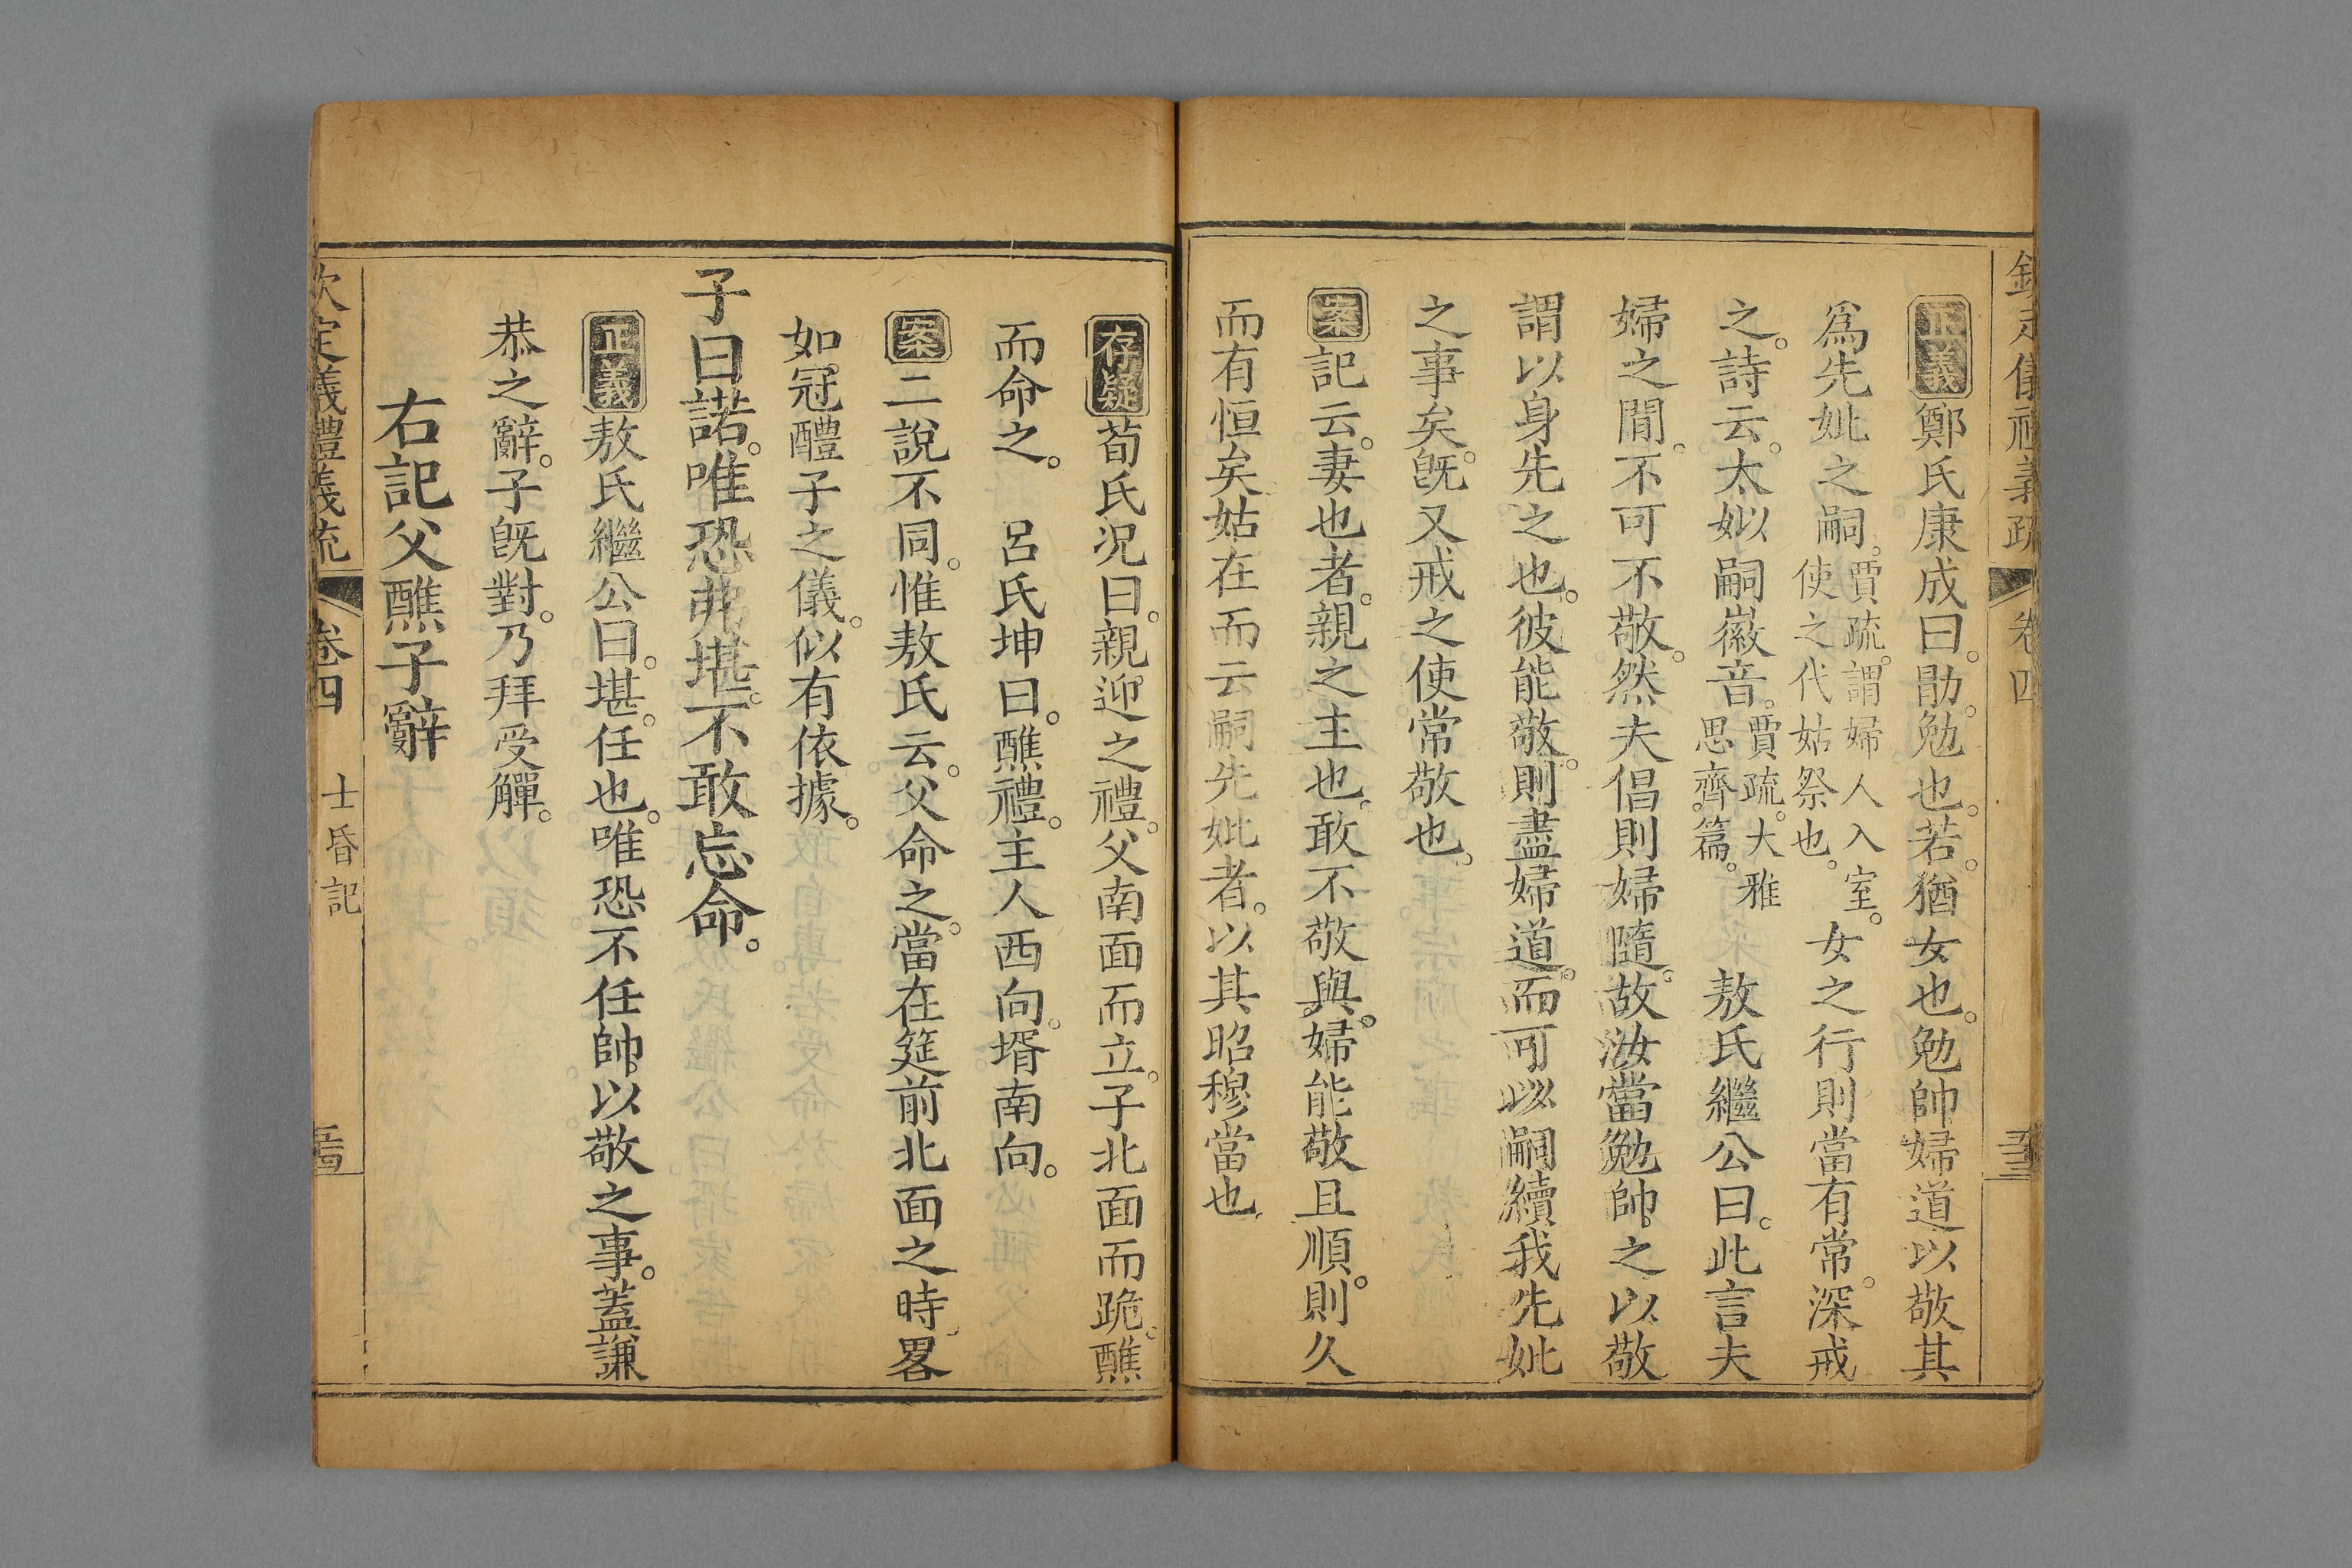 欽定儀禮義疏 卷四
正義鄭氏康成曰。勖。勉也。若。猶女也。勉帥婦道以敬其
爲先妣之嗣。賈疏。謂婦人入室。使之代姑祭也。女之行則當有常。深戒
之。詩云。太姒嗣徽音。賈疏。大雅思齊篇。 敖氏繼公曰。此言夫
婦之閒。不可不敬。然夫倡則婦隨。故汝當勉帥之以敬
謂以身先之也。彼能敬。則盡婦道。而可以嗣續我先妣
之事矣。旣又戒之使常敬也。
案記云。妻也者。親之主也。敢不敬與。婦能敬且順。則久
而有恒矣。姑在而云嗣先妣者。以其昭穆當也
存疑荀氏況曰。親迎之禮。父南面而立。子北面而跪。醮
而命之。 呂氏坤曰。醮禮。主人西向。壻南向。
案二說不同。惟敖氏云。父命之。當在筵前北面之時。畧
如冠醴子之儀。似有依據。
子曰諾。唯恐弗堪。不敢忘命。
正義敖氏繼公曰。堪。任也。唯恐不任帥以敬之事。蓋謙
恭之辭。子旣對。乃拜受觶。
右記父醮子辭
欽定儀禮義疏 卷四 士昏記